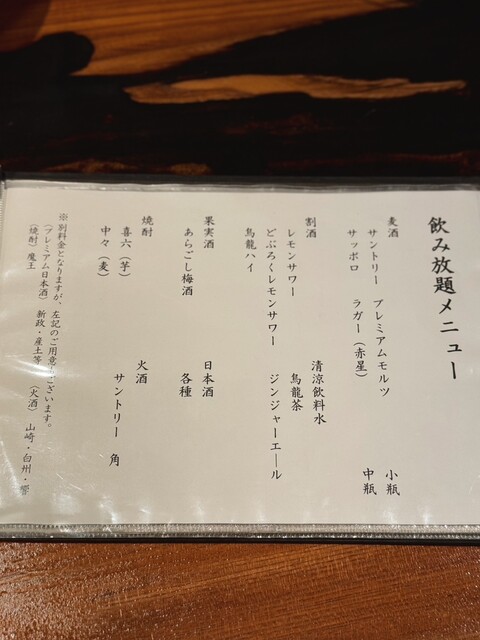 飲み放題メニュー
麦酒
サントリー　プレミアムモルツ　小瓶
サッポロ　ラガー（赤星）　中瓶
割酒
レモンサワー
どぶろくレモンサワー
烏龍ハイ
清涼飲料水
烏龍茶
ジンジャーエール
果実酒
あらごし梅酒
日本酒
各種
焼酎
喜六（芋）
中々（麦）
火酒
サントリー　角
※別料金となりますが、左記のご用意もございます。
（プレミアム日本酒）　新政・産土等　（火酒）　山崎・白州・響
（焼酎）　魔王